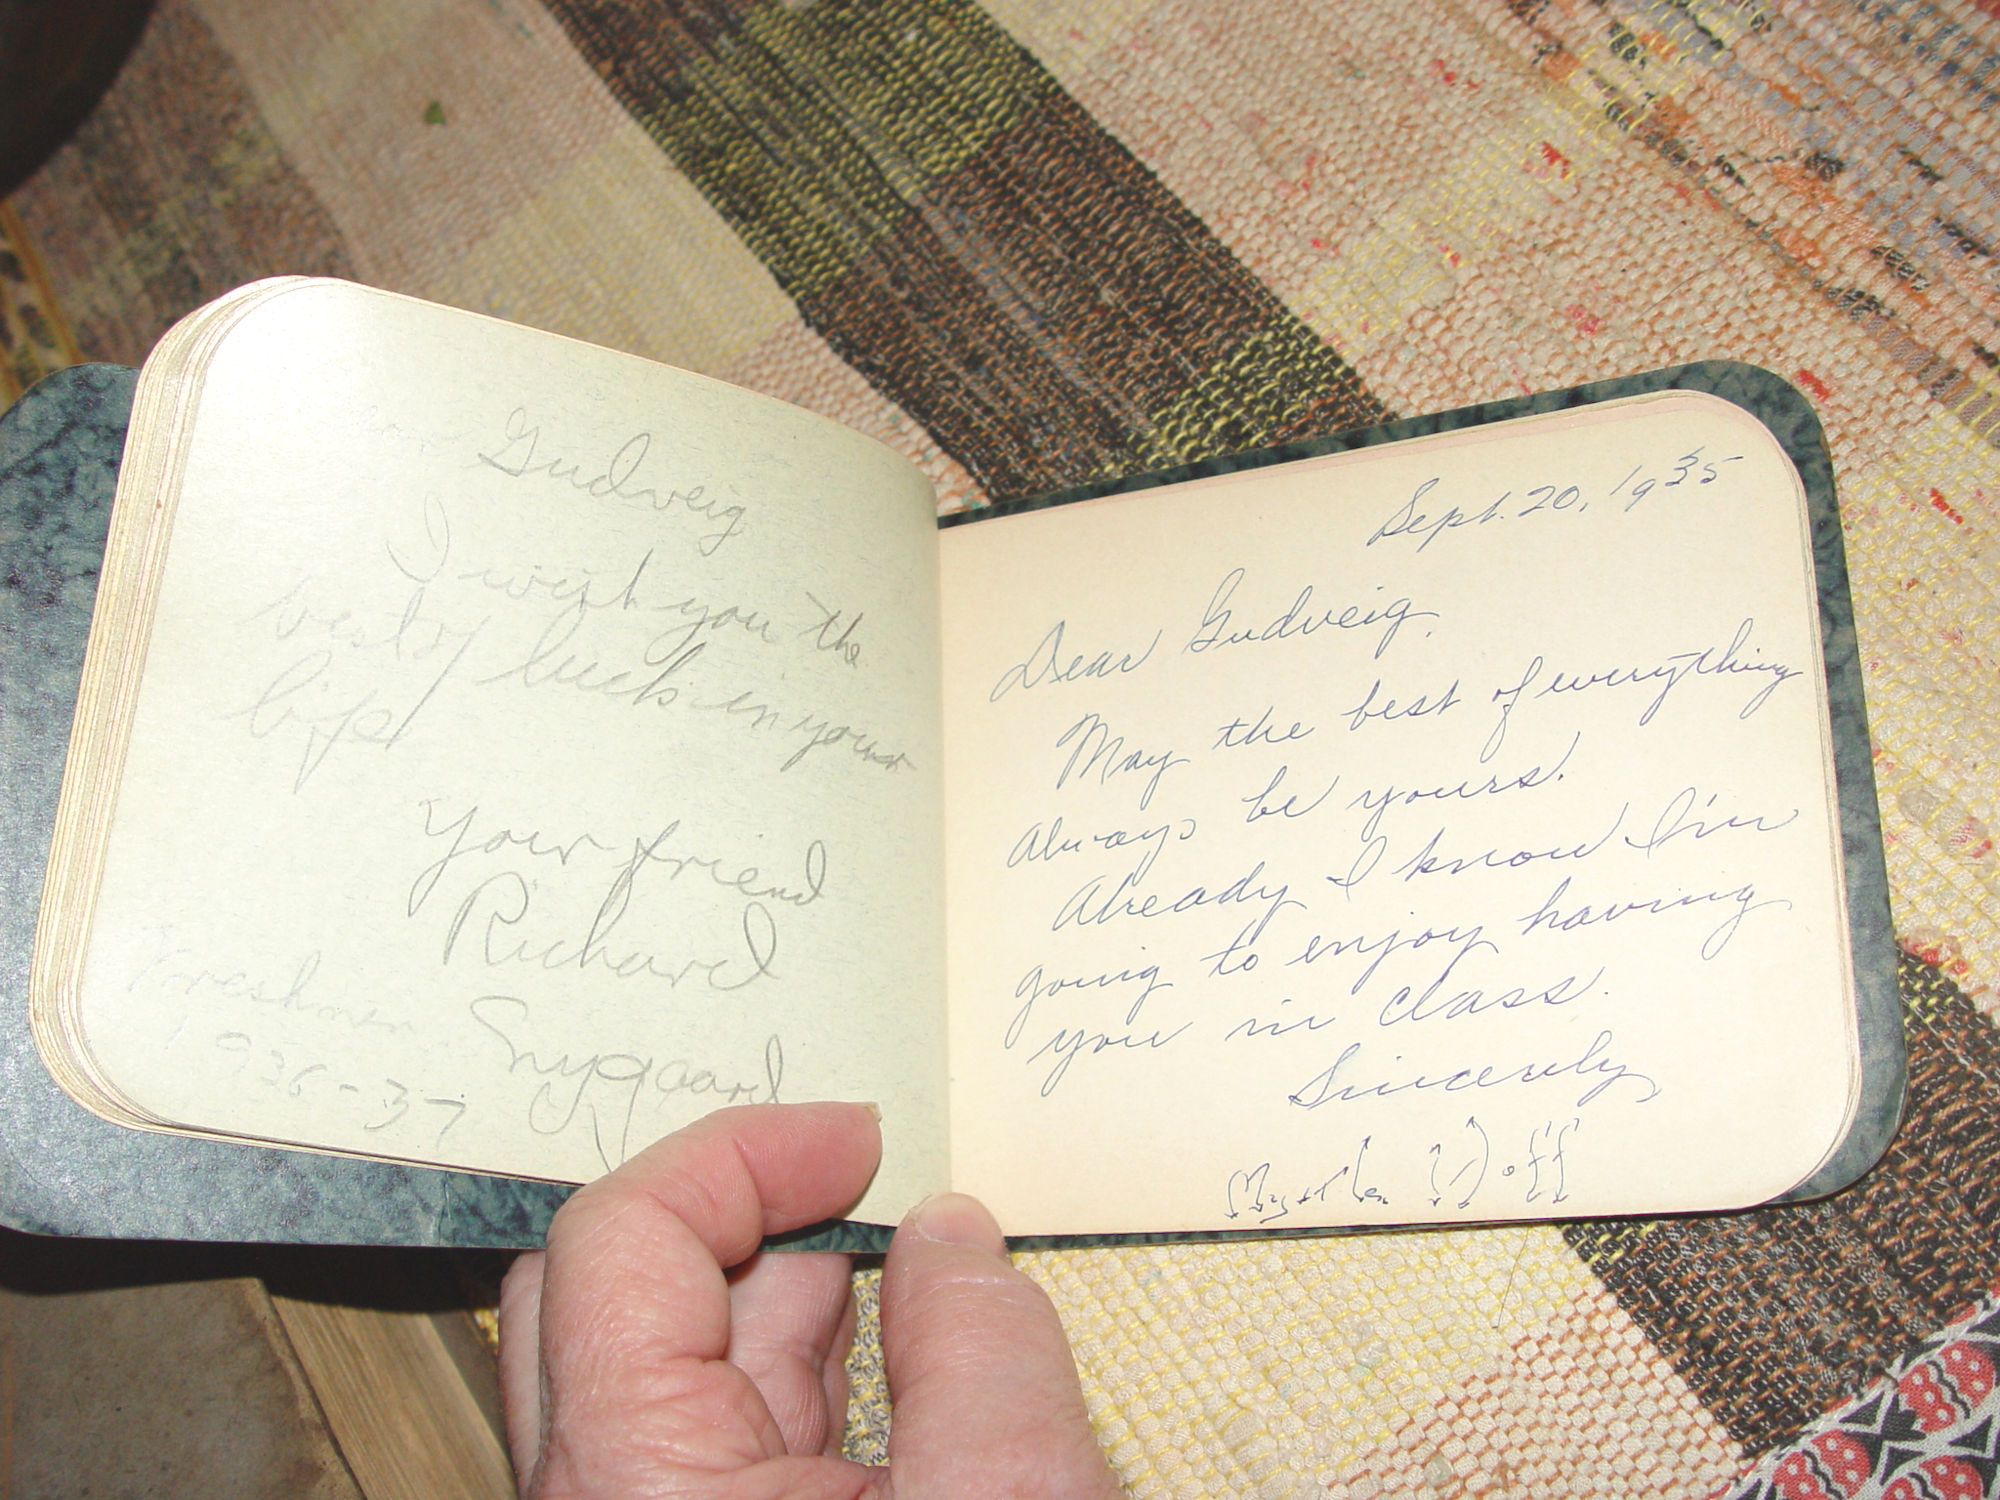 Dear Gudveig
I wish you the
best of luck in your
life
Your friend
Richard
Nygaard
Freshmen
1936-37
Sept. 20, 1935
Dear Gudveig,
May the best of everything
always be yours.
Already I know I'm
going to enjoy having
you in class.
Sincerely
Myrtle